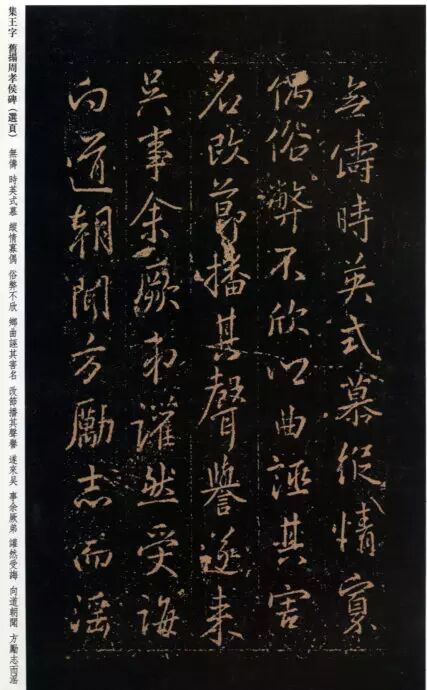 無儔時英式慕縱情寡
偶俗弊不欣鄉曲誣其害
名改節播其聲譽遂來
吳事余厥弟讙然受誨
向道朝聞方勵志而滛
集王字 舊搨周孝侯碑（選頁） 無儔 時英式慕 縱情寡偶 俗弊不欣 鄉曲誣其害名 改節播其聲譽 遂來吳 事余厥弟 讙然受誨 向道朝聞 方勵志而滛